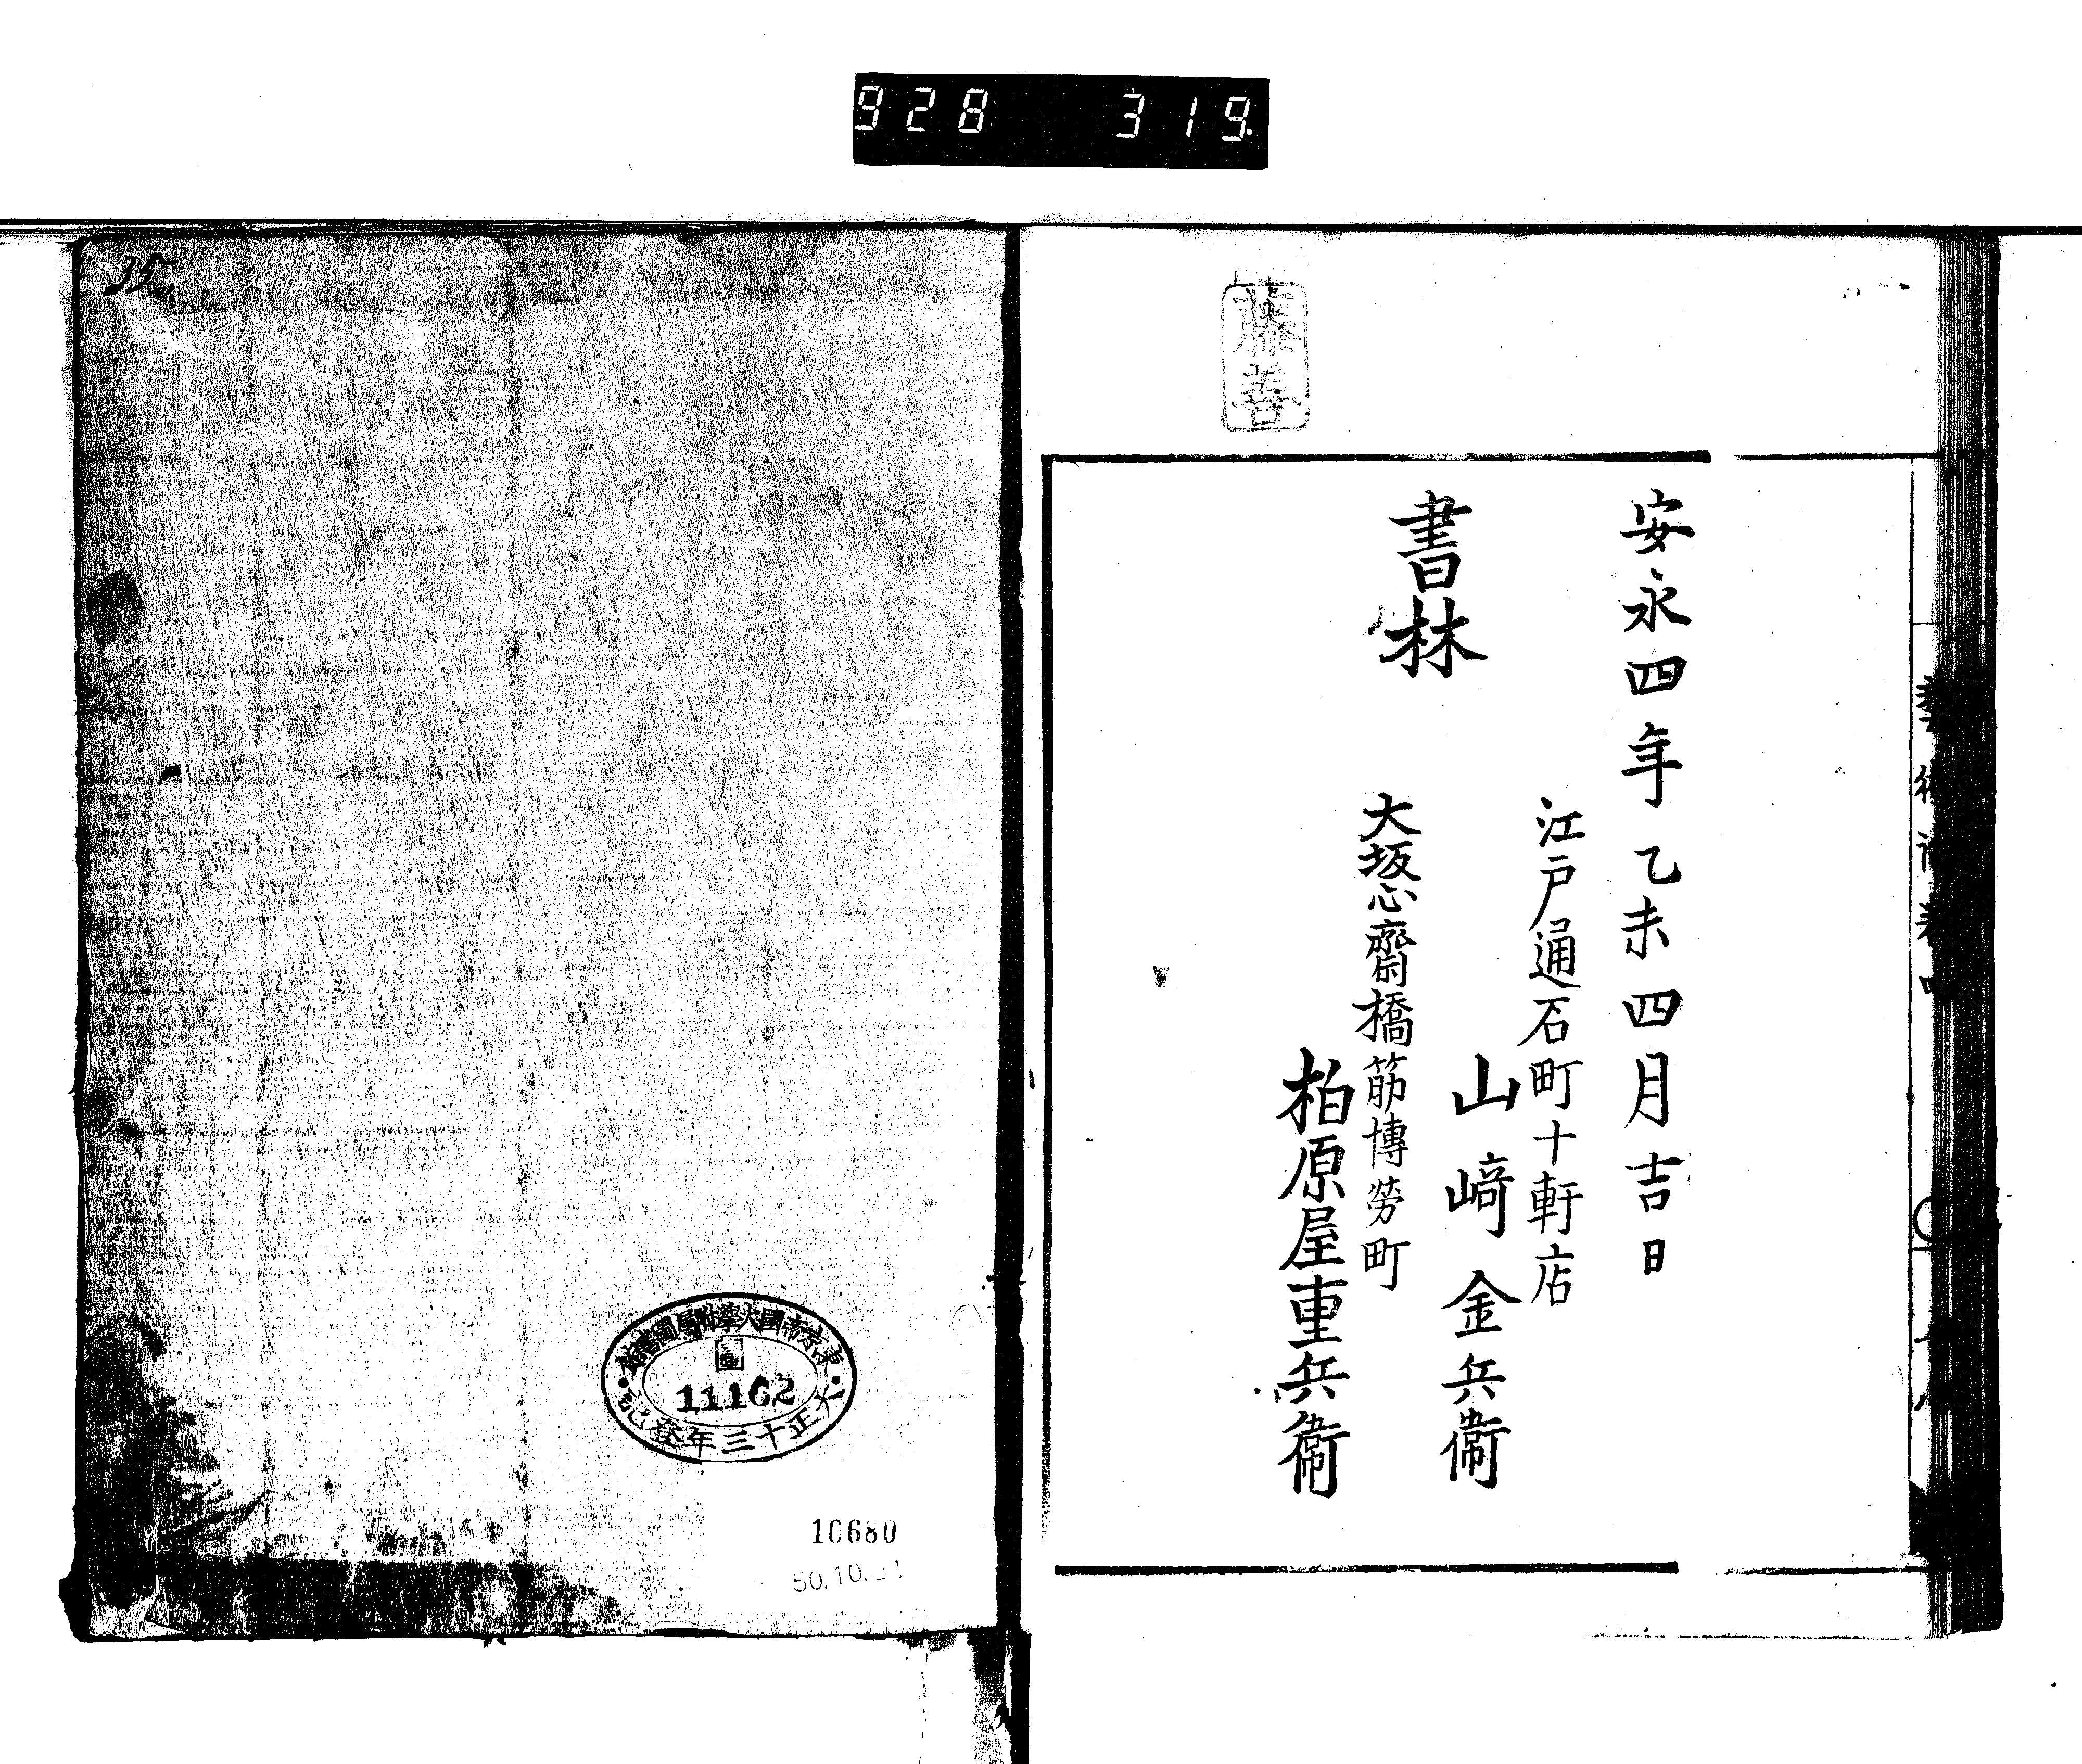 928 319
藤善
安永四年乙未四月吉日
江戸通石町十軒店
山﨑金兵衞
書林
大坂心齋橋筋博労町
柏原屋重兵衞
35
東京帝國大學附屬圖書館
11162
大正十三年登記
10680
50.10.